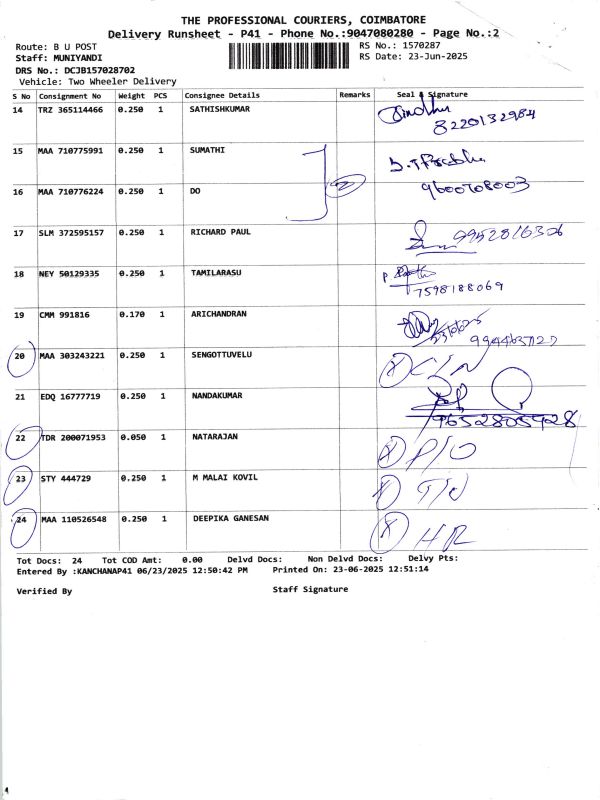 THE PROFESSIONAL COURIERS, COIMBATORE
Delivery Runsheet - P41 - Phone No.:9047080280 - Page No.:2
Route: B U POST
RS No.: 1570287
Staff: MUNIYANDI
RS Date: 23-Jun-2025
DRS No.: DCJB157028702
Vehicle: Two Wheeler Delivery
S No Consignment No Weight PCS Consignee Details Remarks Seal & Signature
14 TRZ 365114466 0.250 1 SATHISHKUMAR Sindhu
8220132984
15 MAA 710775991 0.250 1 SUMATHI
16 MAA 710776224 0.250 1 DO 9600708003
17 SLM 372595157 0.250 1 RICHARD PAUL 9952816306
18 NEY 50129335 0.250 1 TAMILARASU
7598188069
19 CMM 991816 0.170 1 ARICHANDRAN
20 MAA 303243221 0.250 1 SENGOTTUVELU X C/N
21 EDQ 16777719 0.250 1 NANDAKUMAR
9652805928
22 TDR 200071953 0.050 1 NATARAJAN X P/O
23 STY 444729 0.250 1 M MALAI KOVIL X T/N
24 MAA 110526548 0.250 1 DEEPIKA GANESAN X HR
Tot Docs: 24 Tot COD Amt: 0.00 Delvd Docs: Non Delvd Docs: Delvy Pts:
Entered By :KANCHANAP41 06/23/2025 12:50:42 PM Printed On: 23-06-2025 12:51:14
Verified By Staff Signature